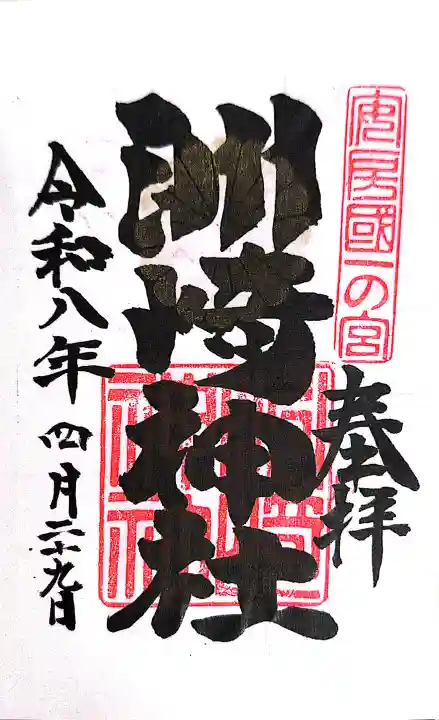 安房國一の宮
奉拝
洲埼神社
令和八年四月二十九日